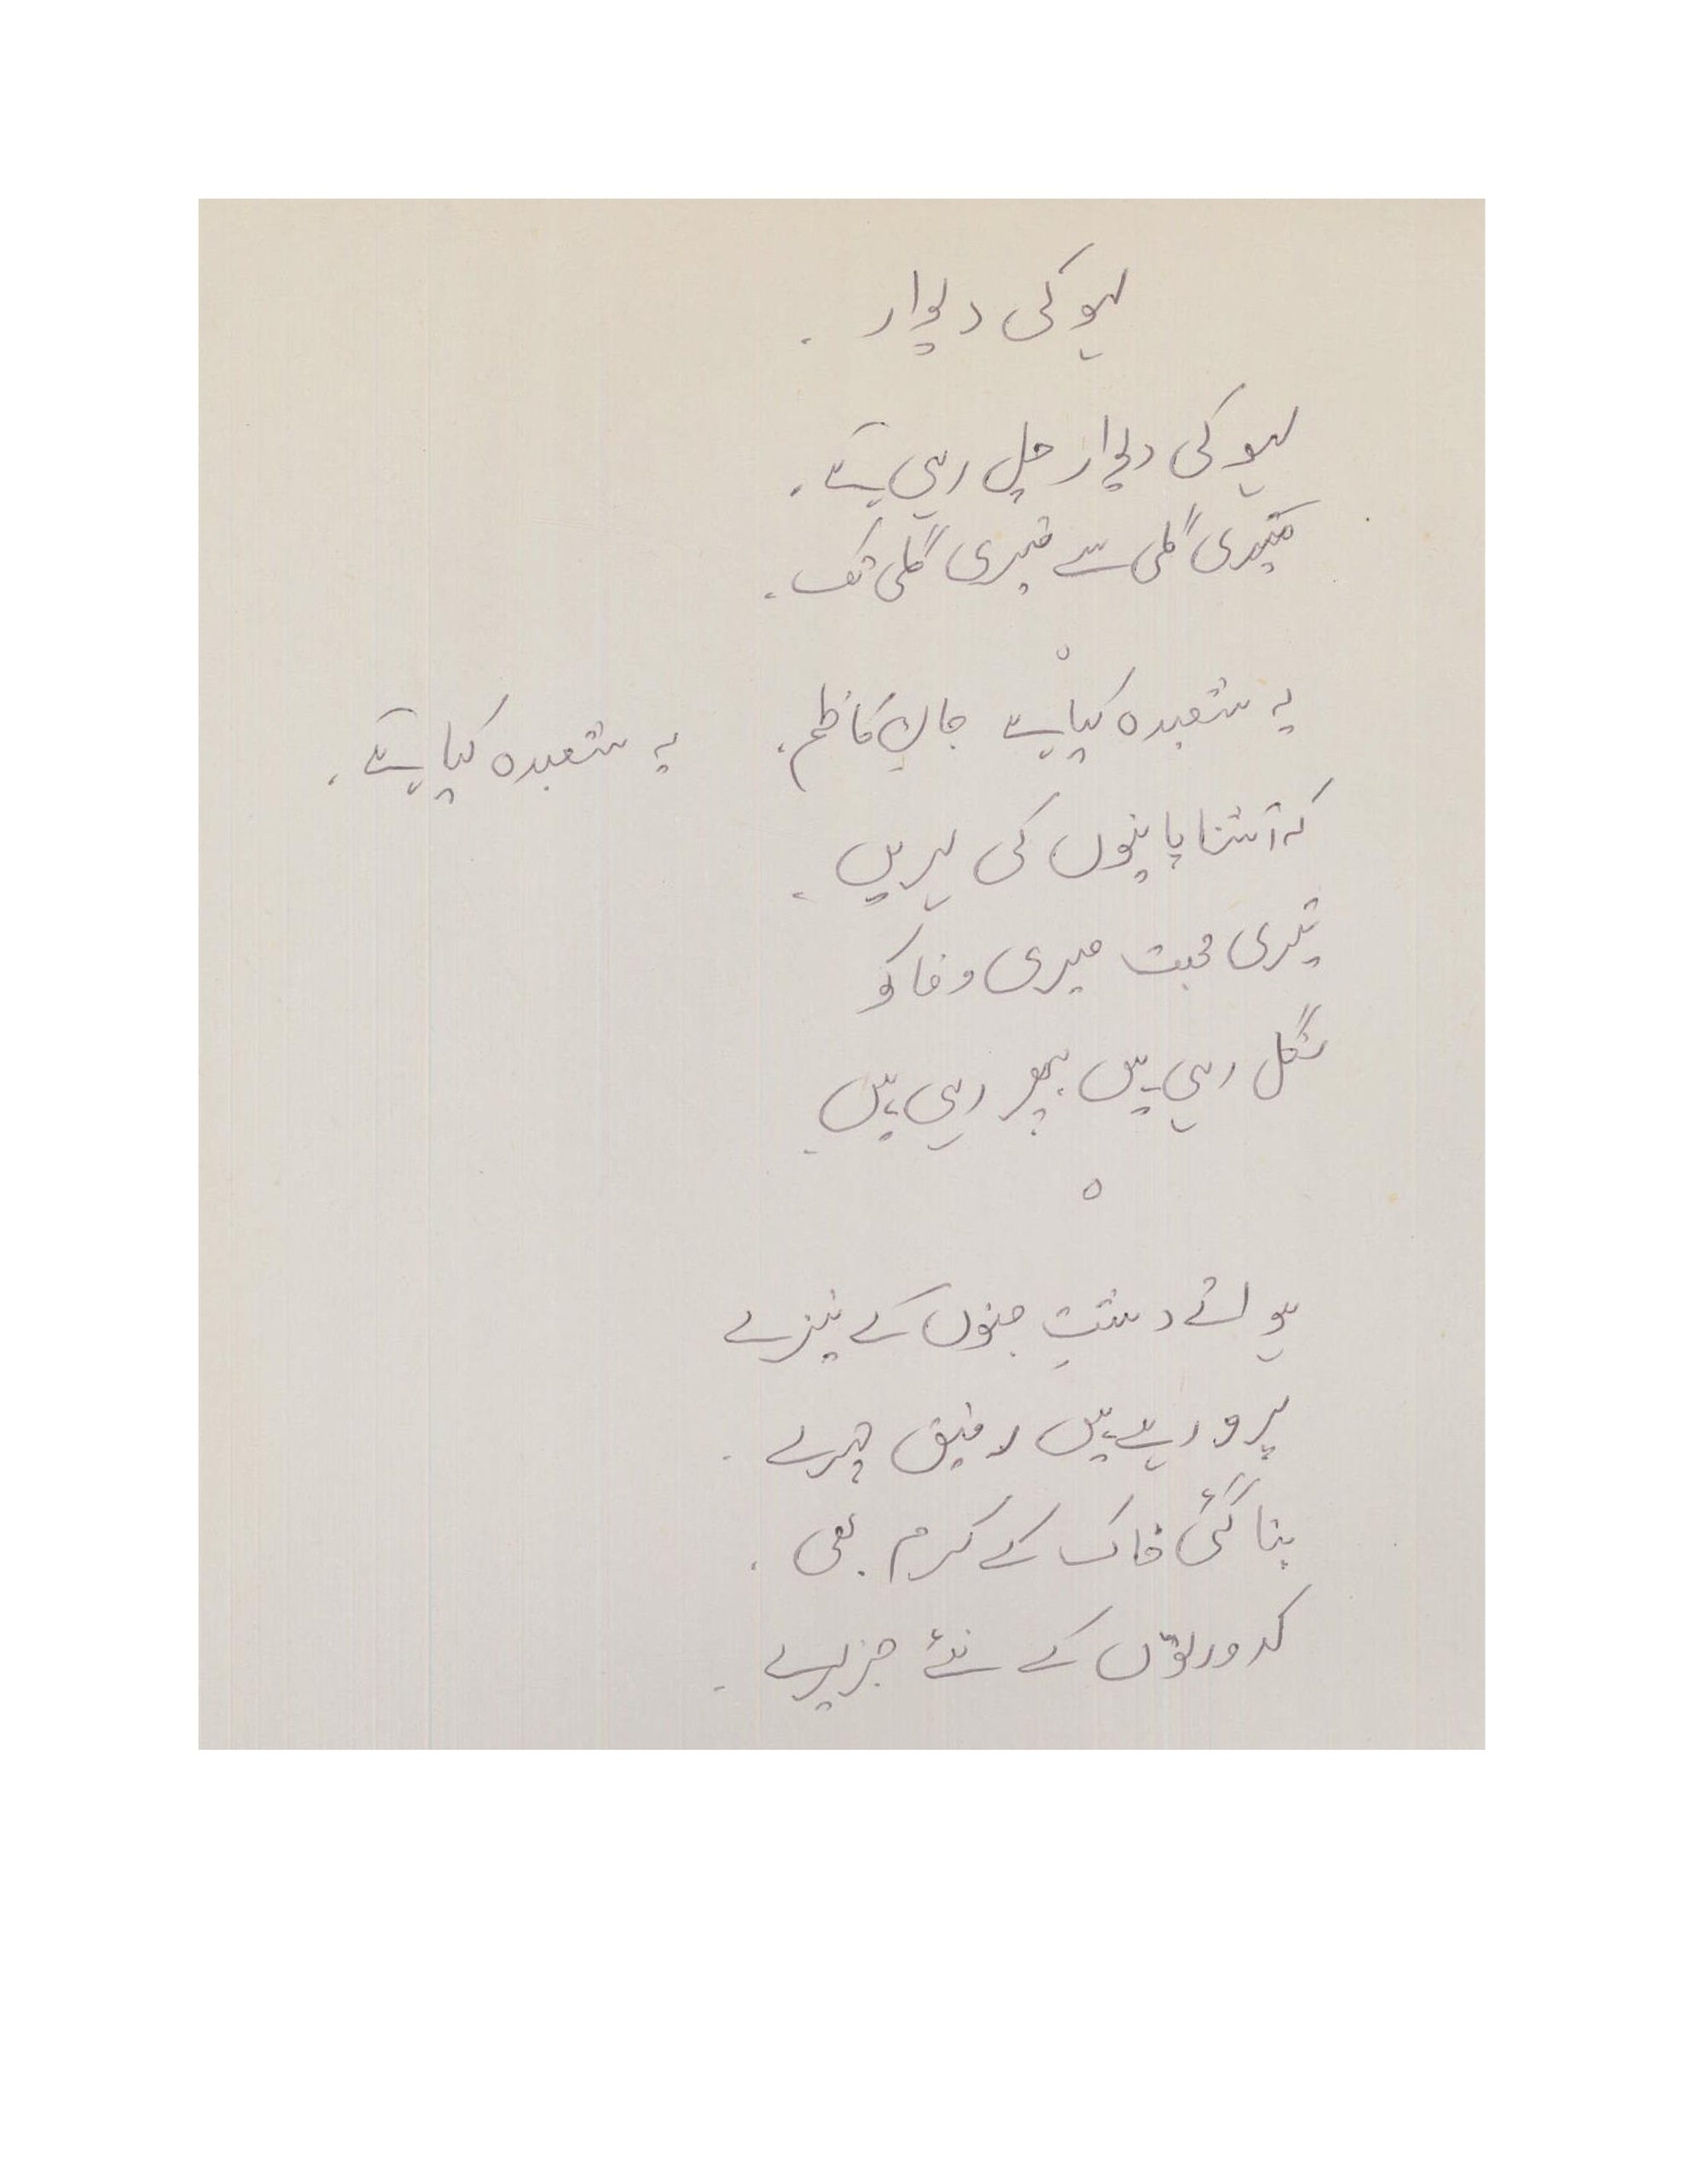 لہو کی دیوار
لہو کی دیوار چل رہی ہے
تیری گلی سے میری گلی تک
ہ
یہ شعبدہ کیا ہے جانِ کاظم، یہ شعبدہ کیا ہے
کہ آشنا پانیوں کی لہریں
تیری محبت میری وفا کو
نگل رہی ہیں بپھر رہی ہیں
ہ
ہوائے دشتِ جنوں کے نیزے
پرو رہے ہیں رفیق چہرے
بنا گئی خاک کے کرم بھی
کدورتوں کے نئے جزیرے